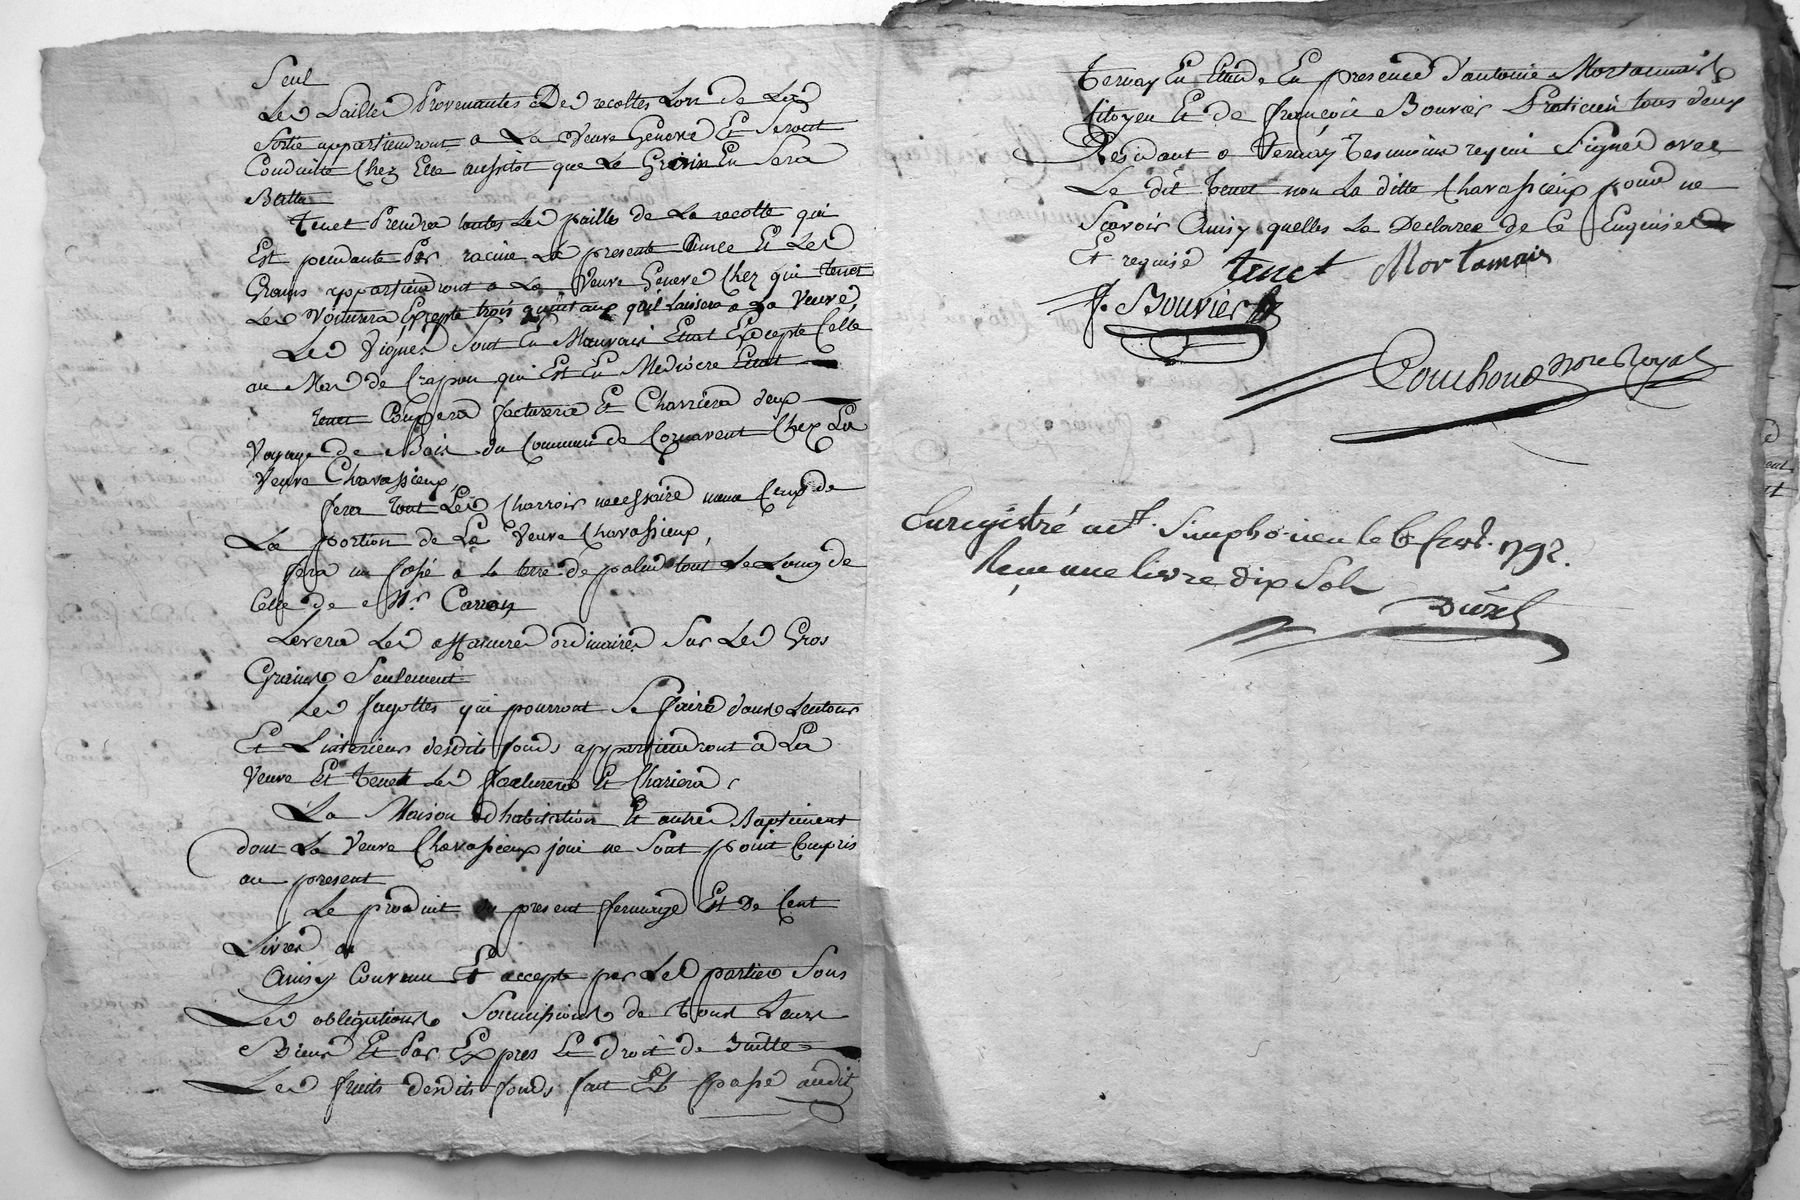 Seul
Les Pailles Provenantes Des recoltes Lors de La
Sortie appartiendront a La veuve Geneve Et Seront
Conduitte Chez Elle aussitot que Le Grain En Sera
Battu
Tenet Prendra toutes Les pailles de La recolte qui
Est pendante Par racine La presente Année Et Les
Grains appartiendront a La Veuve Geneve Chez qui tenet
Les Voiturera Excepte trois quintaux quil Laissera a La Veuve,
Les Vignes Sont En Mauvais Etat Excepte Celle
au Mas de Crapon qui Est En Mediocre Etat
tenet Coupera facturera Et Charriera deux
Voyage de Bois du Commun de Cornavent Chez La
Veuve Chavassieux,
fera tout Les Charrois necessaire meme Ceux de
La portion de La Veuve Chavassieux,
fera un fossé a la terre de palud tout Le Long de
Celle de Mr. Carron
Levera Les ordinaires Sur Les Gros
Grains Seulement
Les fagottes qui pourront Se faire dans Lentour
Et Linterieur desdits fonds appartiendront a La
Veuve Et tenet Les facturera Et Chariera,
La Maison dhabitation Et autres Baptiment
dont La Veuve Chavassieux joui ne Sont point Compris
au present
Le produit du present fermage Est De Cent
Livres
Ainsy Convenu Et accepte par Les parties Sous
Les obligations Soumissions de tous Leurs
Biens Et Par Expres Le droit de Suitte
Les fruits desdits fonds fait Et passé audit
ternay En Etude En presence d'antoine Mortamais
Citoyen Et de françois Bouvier Praticien tous deux
Residant a Ternay temoins requis Signes avec
Le dit tenet non La ditte Chavassieux pour ne
Scavoir Ainsy quelles La Declaree de Ce Enquise
Et requise tenet Mortamais
f. Bouvier
Couchoud nore Royal
Enregistré a St. Simphorien le 6 1792.
Reçu une livre dix Sols